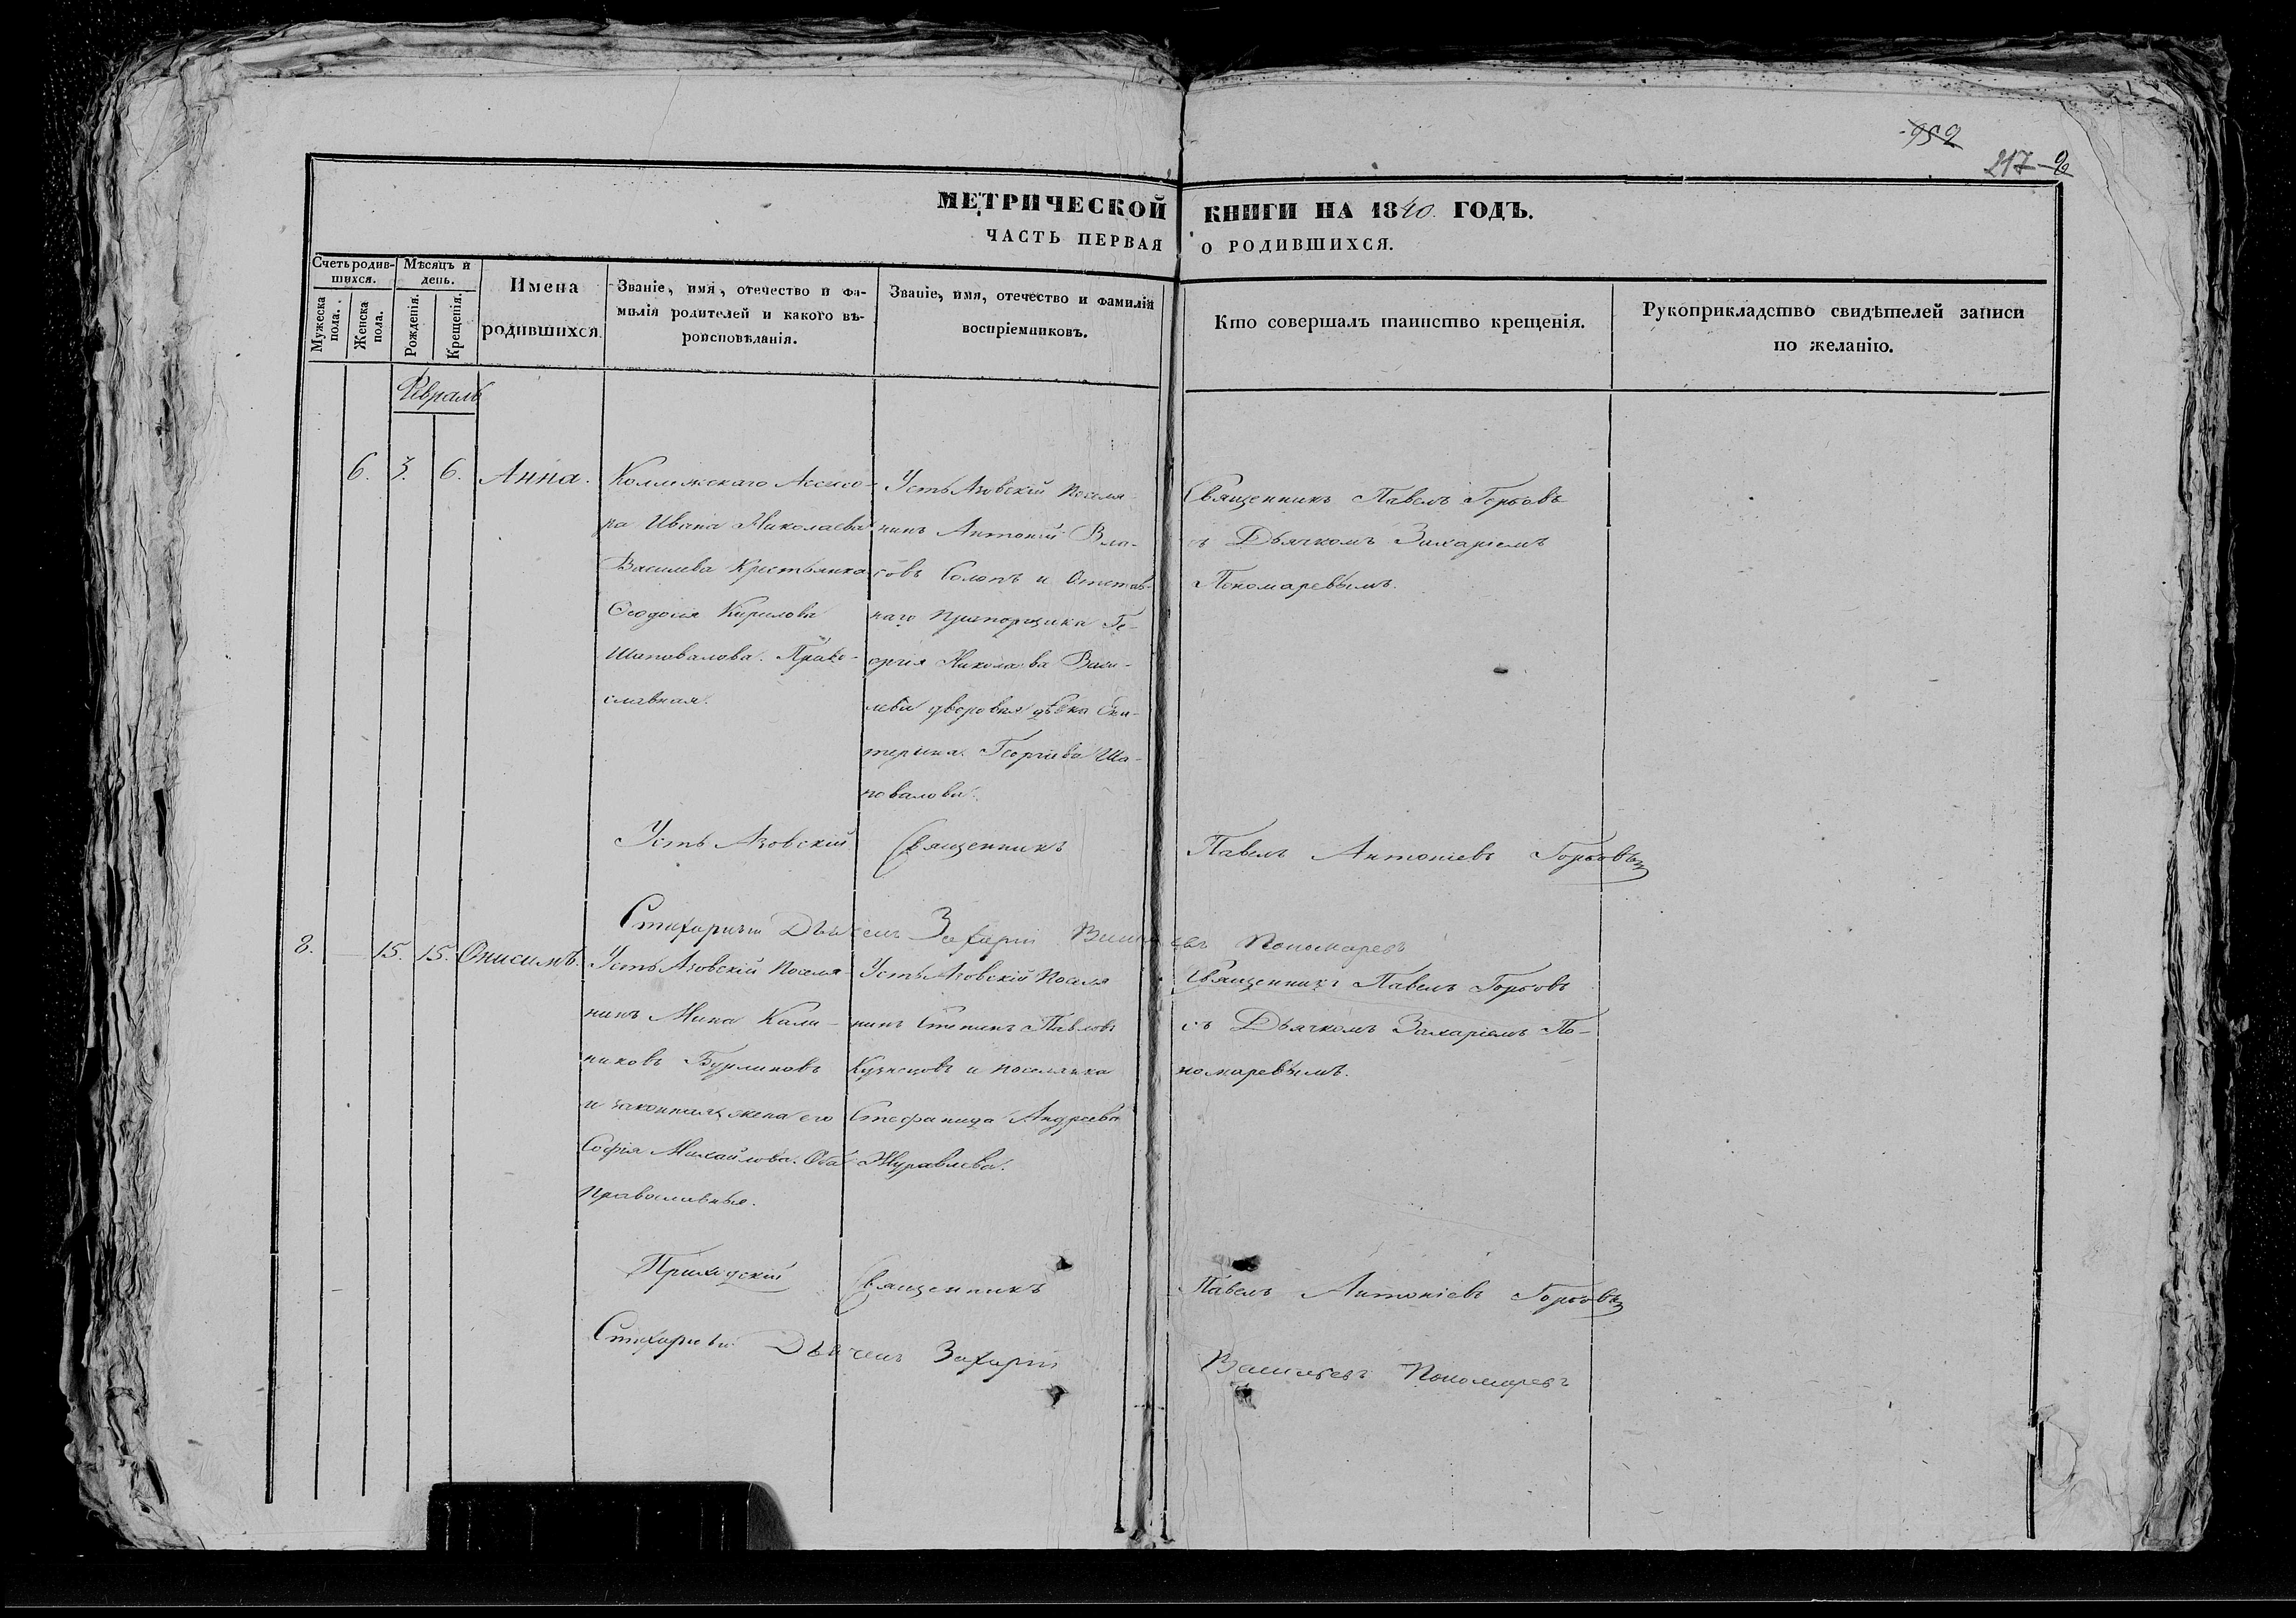 952
217
МЕТРИЧЕСКОЙ КНИГИ НА 1840 ГОДЪ.
ЧАСТЬ ПЕРВАЯ О РОДИВШИХСЯ.
Счетъ родив-
шихся.
Мужеска
пола.
Женска
пола.
Мѣсяцъ и
день.
Рожденія.
Крещенія.
Имена
родившихся.
Званіе, имя, отечество и фа-
милія родителей и какого вѣ-
роисповѣданія.
Званіе, имя, отечество и фамилія
воспріемниковъ.
Кто совершалъ таинство крещенія.
Рукоприкладство свидѣтелей записи
по желанію.
Февраль
6. 3. 6. Анна.
Коллежскаго Ассесо-
ра Ивана Николаева
Василева Крестьянка
Ѳеодосія Кирилова
Шаповалова. Право-
славная.
Усть Азовскій Поселя-
нинъ Антоній Вла-
совъ Солопъ и Отстав-
наго Прапорщика Ге-
оргія Николаева Васи-
лева дворовая дѣвка Ека-
терина Георгіева Ша-
повалова.
Священникъ Павелъ Горбовъ
съ Дьячкомъ Захаріемъ
Пономаревымъ.
Усть Азовскій Священникъ Павелъ Антоніевъ Горбовъ
Дьячекъ Захарій Васильевъ Пономаревъ
8. 15. 15. Онисимъ.
Усть Азовскій Поселя-
нинъ Мина Кали-
никовъ Бурлиновъ
и законная жена его
Софія Михайлова. Оба
Православные.
Усть Азовскій Поселя
нинъ Стефанъ Павловъ
Кузнецовъ и поселянка
Стефанида Андреева
Журавлева.
Священникъ Павелъ Горбовъ
съ Дьячкомъ Захаріемъ По-
номаревымъ.
Приходскій Священникъ Павелъ Антоніевъ Горбовъ
Дьячекъ Захарій Васильевъ Пономаревъ